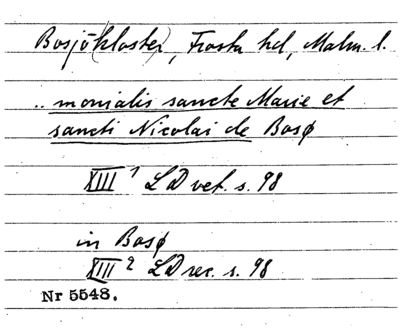 Bosjö(kloster), Frosta hd, Malm. l.
.. monialis sancte Marie et
sancti Nicolai de Bosø
XIII 1 LD vet. s. 98
in Bosø
XIII 2 LD rec. s. 98
Nr 5548.